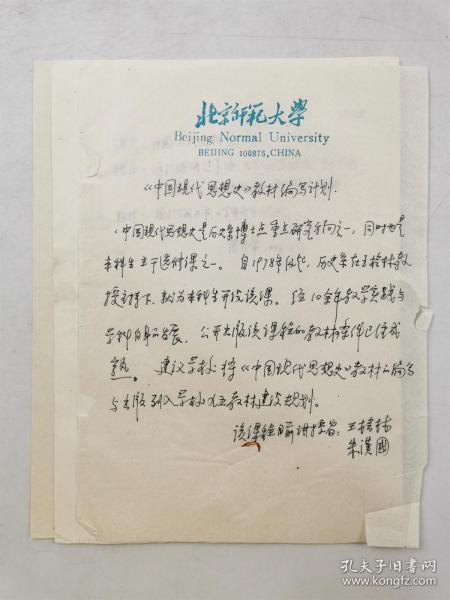 北京师范大学
Beijing Normal University
BEIJING 100875, CHINA
《中国现代思想史》教材编写计划.
中国现代思想史是历史系博士点重点研究方向之一，同时也是
本科生主干选修课之一。自1978年以来，历史系在王桧林教
授主持下，就为本科生开设该课。经10余年教学实践与
学科自身的发展，公开出版该课程的教材条件已经成
熟。建议学校将《中国现代思想史》教材的编写
与出版列入学校九五教材建设规划。
该课程目前讲授者：王桧林
朱汉国
孔夫子旧书网
www.kongfz.com